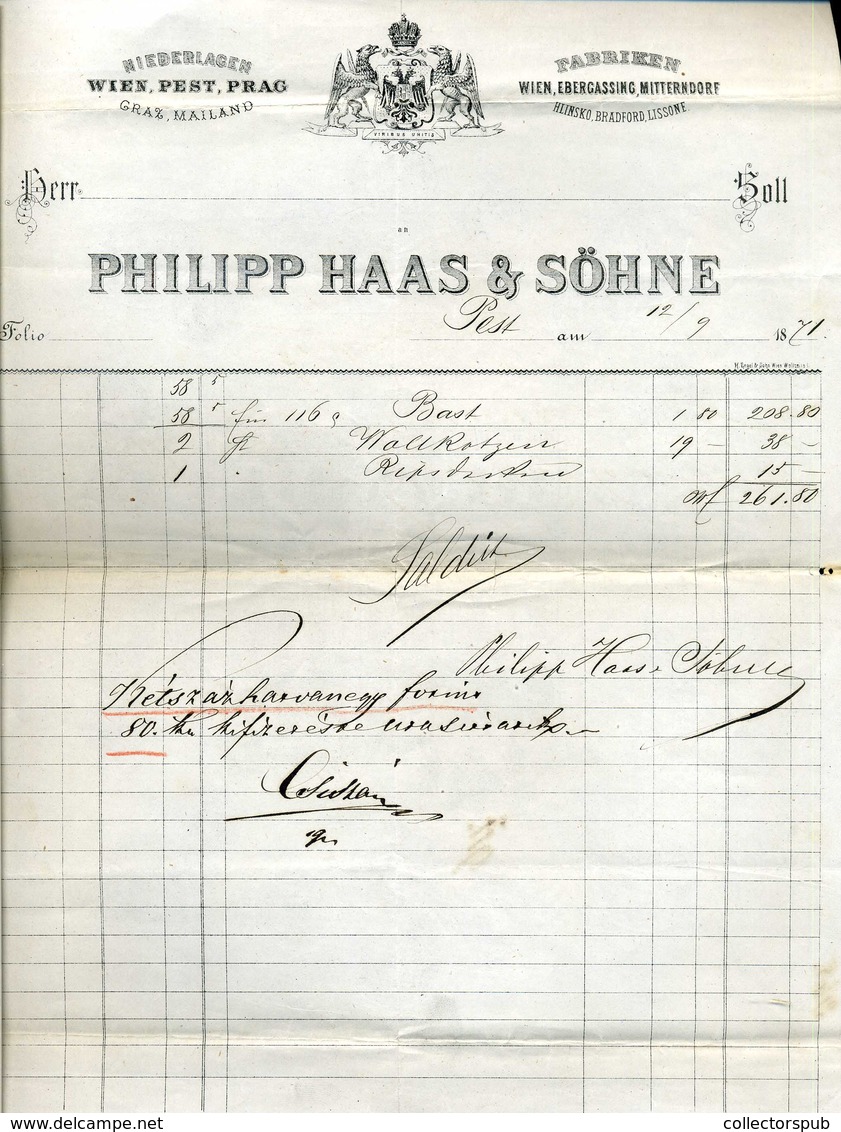 NIEDERLAGEN
WIEN, PEST, PRAG
GRAZ, MAILAND
VIRIBUS UNITIS
FABRIKEN.
WIEN, EBERGASSING, MITTERNDORF
HLINSKO, BRADFORD, LISSONE.
Herr Soll
an
PHILIPP HAAS & SÖHNE
Folio Pest am 12/9 1871.
58 5
58 5 für 116 Bast 1 80 208.80
2 Wollkotzen 19 – 38 –
1 15 –
261.80
Saldirt
Philipp Haas & Söhne
Kétszázhatvanegy forint
80. kr kifizetésre